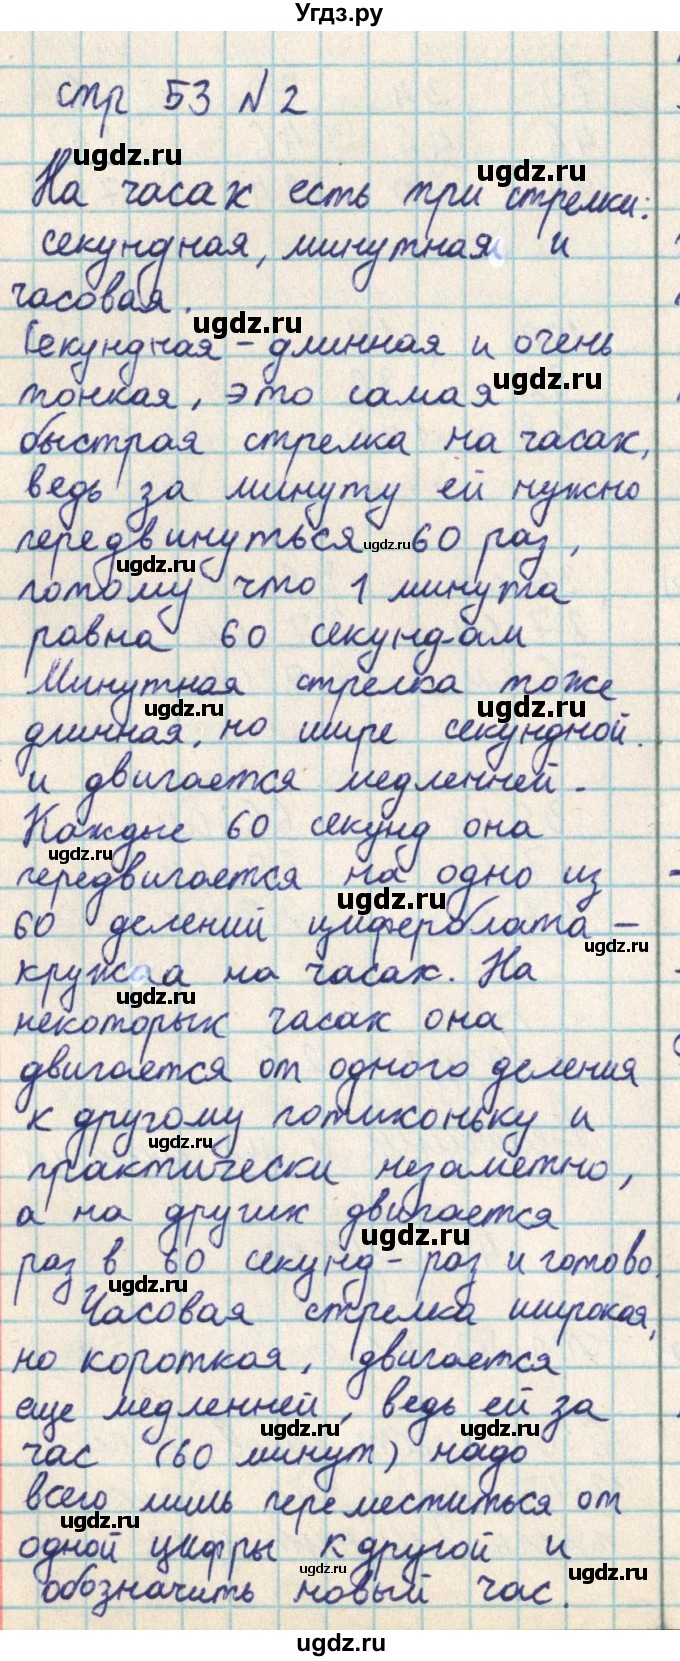 Угдз.ру
стр 53 № 2
ugdz.ru
ugdz.ru
На часах есть три стрелки:
секундная, минутная и
часовая.
ugdz.ru
Секундная – длинная и очень
ugdz.ru
тонкая, это самая
быстрая стрелка на часах,
ведь за минуту ей нужно
передвинуться 60 раз,
ugdz.ru
ugdz.ru
потому что 1 минута
равна 60 секунд-ам
Минутная стрелка тоже
ugdz.ru
ugdz.ru
длинная, но шире секундной
и двигается медленней.
Каждые 60 секунд она
ugdz.ru
передвигается на одно из
ugdz.ru
60 делений циферблата –
ugdz.ru
кружаа на часах. На
ugdz.ru
некоторых часах она
двигается от одного деления
к другому потихоньку и
ugdz.ru
практически незаметно,
а на других двигается
ugdz.ru
раз в 60 секунд – раз и готово.
ugdz.ru
Часовая стрелка широкая,
но короткая, двигается
еще медленней, ведь ей за
ugdz.ru
ugdz.ru
час (60 минут) надо
всего лишь переместиться от
ugdz.ru
одной цифры к другой и
ugdz.ru
ugdz.ru
обозначить новый час.
ugdz.ru